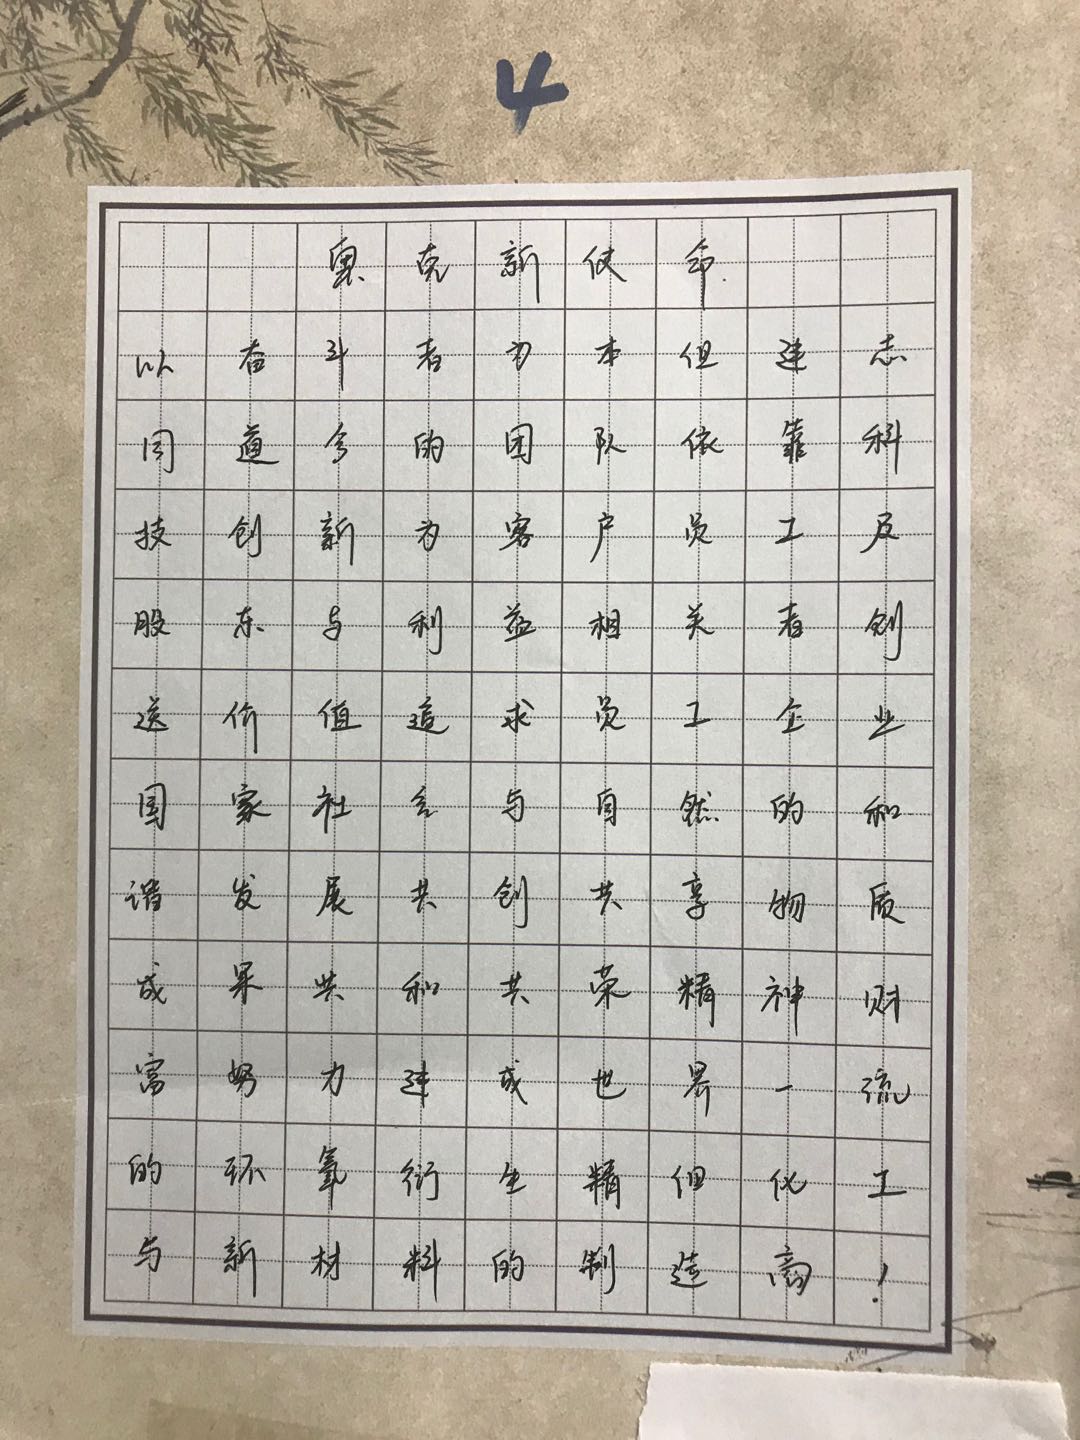 4
奥克新使命
以奋斗者为本组建志
同道合的团队依靠科
技创新为客户员工及
股东与利益相关者创
造价值追求员工企业
国家社会与自然的和
谐发展共创共享物质
成果共和共荣精神财
富努力建成世界一流
的环氧衍生精细化工
与新材料的制造商!